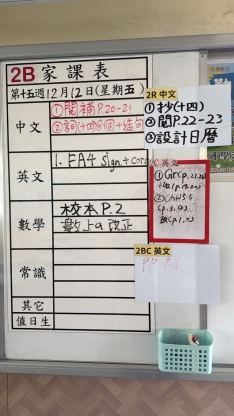 2B 家課表
第十五週12月12日(星期五)
中文
①閱補P.20-21
②詞(十四)8個+造句
英文
1. EA4 sign + corr
數學
校本P.2
數上a 改正
常識
其它
值日生
2R 中文
①抄(十四)
②閱P.22-23
③設計日曆
英文
①Gr(p.
②Ch14
2BC 英文